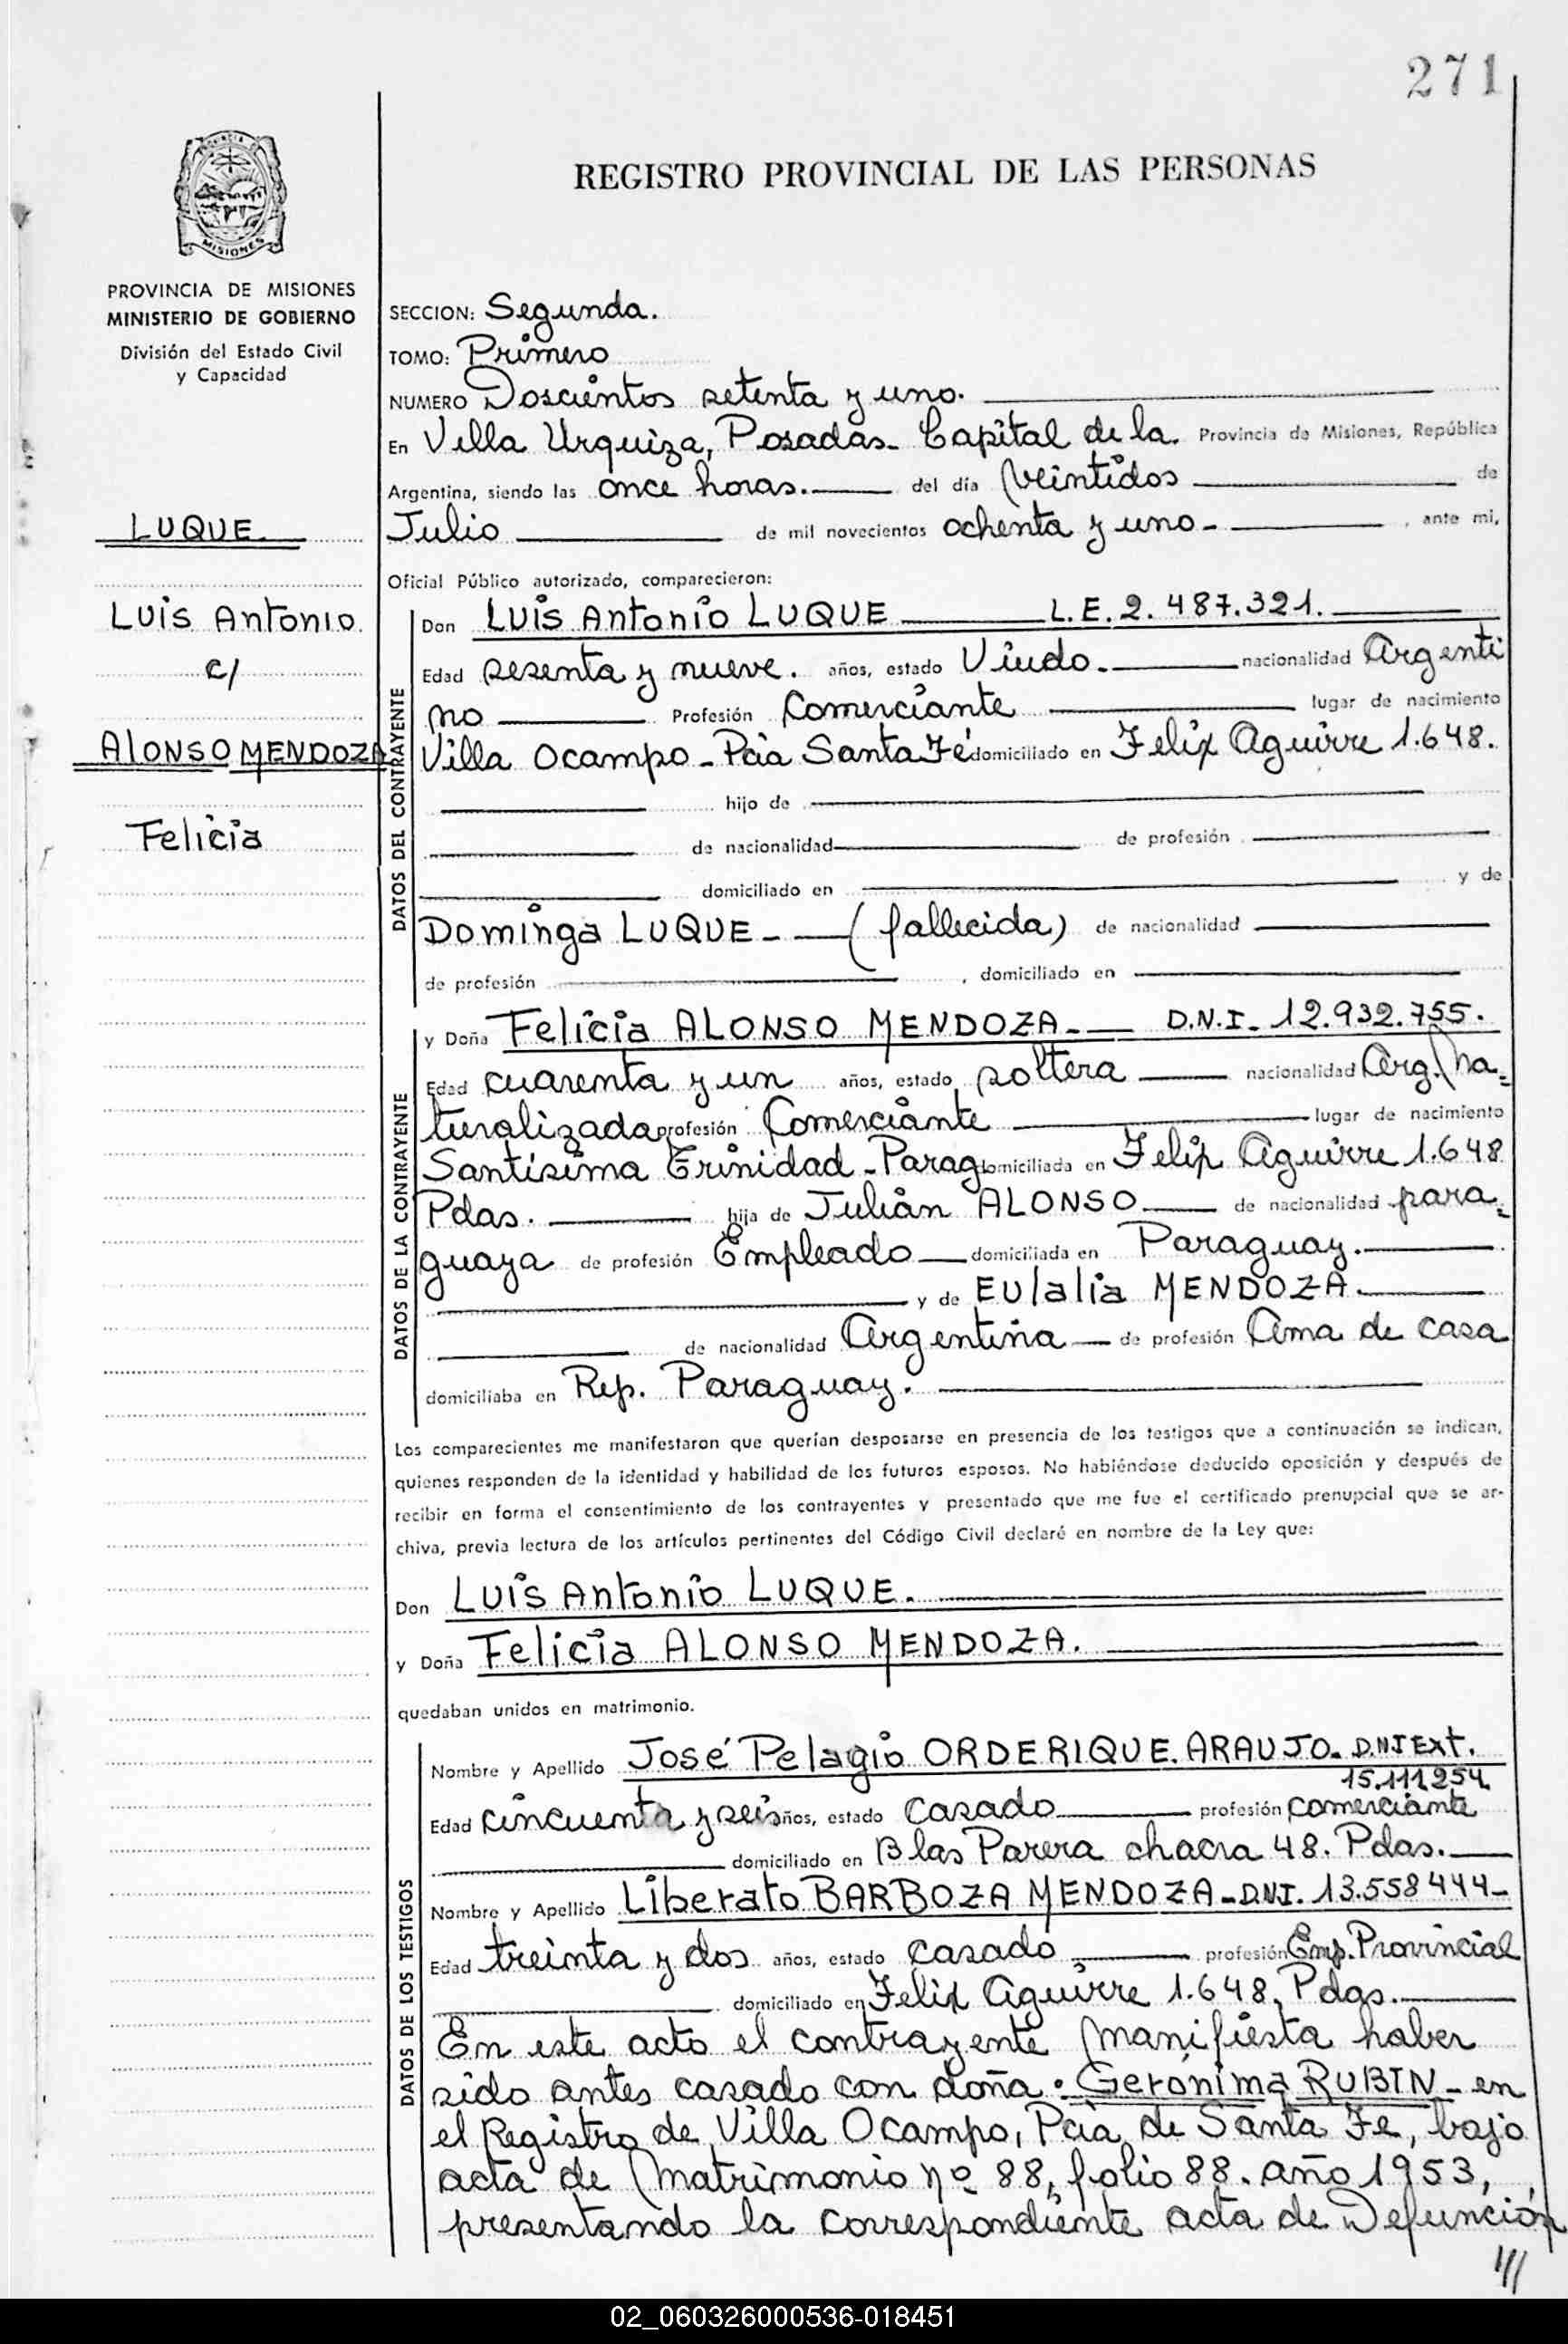 271
PROVINCIA DE
MISIONES
REGISTRO PROVINCIAL DE LAS PERSONAS
PROVINCIA DE MISIONES
MINISTERIO DE GOBIERNO
División del Estado Civil
y Capacidad
LUQUE
Luis Antonio
c/
Alonso MENDOZA
Felicia
SECCION: Segunda.
TOMO: Primero
NUMERO Doscientos setenta y uno.
En Villa Urquiza, Posadas- Capital de la. Provincia de Misiones, República
Argentina, siendo las once horas. del día veintidos de
Julio de mil novecientos ochenta y uno- , ante mi,
Oficial Público autorizado, comparecieron:
DATOS DEL CONTRAYENTE
Don Luis Antonio LUQUE L.E. 2.487.321.
Edad sesenta y nueve. años, estado Viudo. nacionalidad Argenti
no Profesión Comerciante lugar de nacimiento
Villa Ocampo - Pcia Santa Fé domiciliado en Felix Aguirre 1.648.
hijo de
de nacionalidad de profesión
domiciliado en y de
Dominga LUQUE - (fallecida) de nacionalidad
de profesión , domiciliado en
DATOS DE LA CONTRAYENTE
y Doña Felicia ALONSO MENDOZA - D.N.I. 12.932.755.
Edad cuarenta y un años, estado soltera nacionalidad Arg. na=
turalizada profesión Comerciante lugar de nacimiento
Santisima Trinidad - Parag domiciliada en Felix Aguirre 1.648
Pdas. hija de Julián ALONSO de nacionalidad para=
guaya de profesión Empleado domiciliada en Paraguay.
y de Eulalia MENDOZA.
de nacionalidad Argentina de profesión Ama de casa
domiciliaba en Rep. Paraguay.
Los comparecientes me manifestaron que querían desposarse en presencia de los testigos que a continuación se indican,
quienes responden de la identidad y habilidad de los futuros esposos. No habiéndose deducido oposición y después de
recibir en forma el consentimiento de los contrayentes y presentado que me fue el certificado prenupcial que se ar-
chiva, previa lectura de los artículos pertinentes del Código Civil declaré en nombre de la Ley que:
Don Luis Antonio LUQUE.
y Doña Felicia ALONSO MENDOZA.
quedaban unidos en matrimonio.
DATOS DE LOS TESTIGOS
Nombre y Apellido José Pelagio ORDERIQUE. ARAUJO. D.N.I Ext.
15.111.254
Edad cincuenta y seis años, estado casado profesión comerciante
domiciliado en Blas Parera chacra 48. Pdas.
Nombre y Apellido Liberato BARBOZA MENDOZA - D.N.I. 13.558444-
Edad treinta y dos años, estado casado profesión Emp. Provincial
domiciliado en Felix Aguirre 1.648, Pdas.
En este acto el contrayente manifiesta haber
sido antes casado con doña: Gerónima RUBIN - en
el Registro de Villa Ocampo, Pcia de Santa Fe, bajo
acta de Matrimonio nº 88, folio 88. año 1953,
presentando la correspondiente acta de Defunción
///
02_060326000536-018451